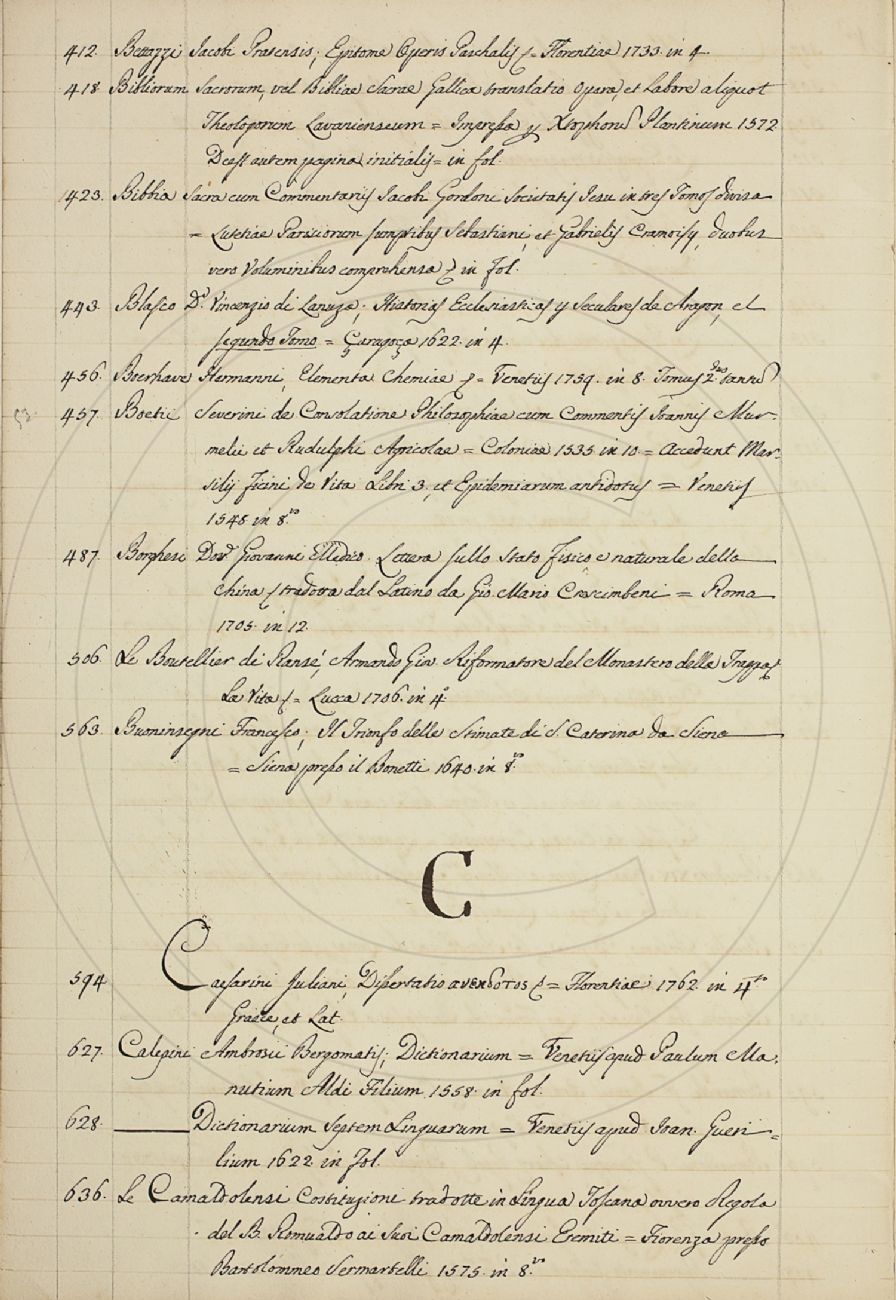 412. Bettazzi Jacobi Pratensis; Epitome Operis Paschalis &= Florentiae 1733. in 4.
418 Bibliorum Sacrorum, vel Bibliae Sacrae Gallica translatio Opera, et Labore aliquot
Theologorum Lovaniensium = Impressa Plantinum 1572
Deest autem pagina initialis = in fol.
423. Bibbia Sacra cum Commentariis Jacobi Gordoni Societatis Jesu in tres Tomos divisa
= Lutetiae Parisiorum sumptibus Sebastiani, et Gabrielis Cramoisy, duobus
vero Voluminibus comprehensa & in fol.
443. Blasco Dr. Vincenzio di Lanuza; Historias Ecclesiasticas y Seculares de Aragon, el
segundo Tomo = Çaragoça 1622. in 4.
456. Boerhave Hermanni, Elementa Chemiae &= Venetiis 1759. in 8. Tomus 2.dus
457. Boetii Severini de Consolatione Philosophiae cum Commentis Joannis Mur-
melii et Rudulphi Agricolae = Coloniae 1535 in 10 = accedunt Mar-
silij Ficini de Vita Libri 3, et Epidemiarum antidotus = Venetiis
1548 in 8.vo
487. Borghesi Giovanni Medico. Lettera sullo Stato fisico e naturale della
China & tradotta dal Latino da Gio. Mario Crescimbeni = Roma
1705. in 12.
506. Le Boutellier di Ransé, Armando Gio. Riformatore del Monastero della Trappa
La Vita &= Lucca 1706. in 4.
563. Buoninsegni Francesco; Il Trionfo delle Stimate di S. Caterina da Siena
= Siena presso il Bonetti 1640. in 8.vo
C
594 Caesarini Juliani, Dissertatio &= Florentiae 1762. in 4.to
Graece, et Lat.
627. Calepini Ambrosii Bergomatis; Dictionarium = Venetiis apud Paulum Ma-
nutium Aldi Filium 1558. in fol.
628. Dictionarium Septem Linguarum = Venetiis apud Joan. Gueri-
lium 1622. in Fol.
636. Le Camaldolensi Costituzioni tradotte in Lingua Toscana ovvero Regola
del B. Romualdo ai Suoi Camaldolensi Eremiti = Fiorenza presso
Bartolommeo Sermartelli 1575. in 8.vo